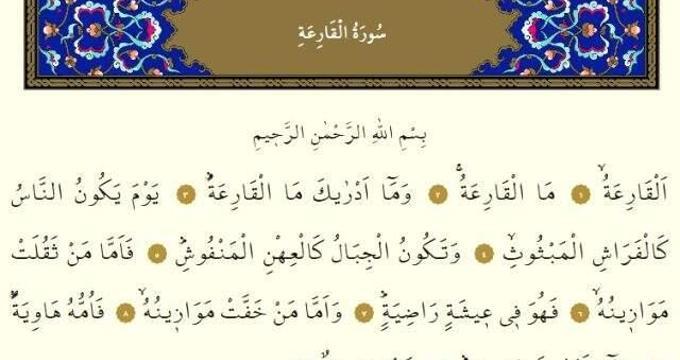 سُورَةُ الْقَارِعَةِ
بِسْمِ اللهِ الرَّحْمٰنِ الرَّح۪يمِ
اَلْقَارِعَةُۙ ﴿١﴾ مَا الْقَارِعَةُۚ ﴿٢﴾ وَمَٓا اَدْرٰيكَ مَا الْقَارِعَةُۜ ﴿٣﴾ يَوْمَ يَكُونُ النَّاسُ
كَالْفَرَاشِ الْمَبْثُوثِۙ ﴿٤﴾ وَتَكُونُ الْجِبَالُ كَالْعِهْنِ الْمَنْفُوشِۜ ﴿٥﴾ فَاَمَّا مَنْ ثَقُلَتْ
مَوَاز۪ينُهُۙ ﴿٦﴾ فَهُوَ ف۪ي ع۪يشَةٍ رَاضِيَةٍۜ ﴿٧﴾ وَاَمَّا مَنْ خَفَّتْ مَوَاز۪ينُهُۙ ﴿٨﴾ فَاُمُّهُ هَاوِيَةٌۜ